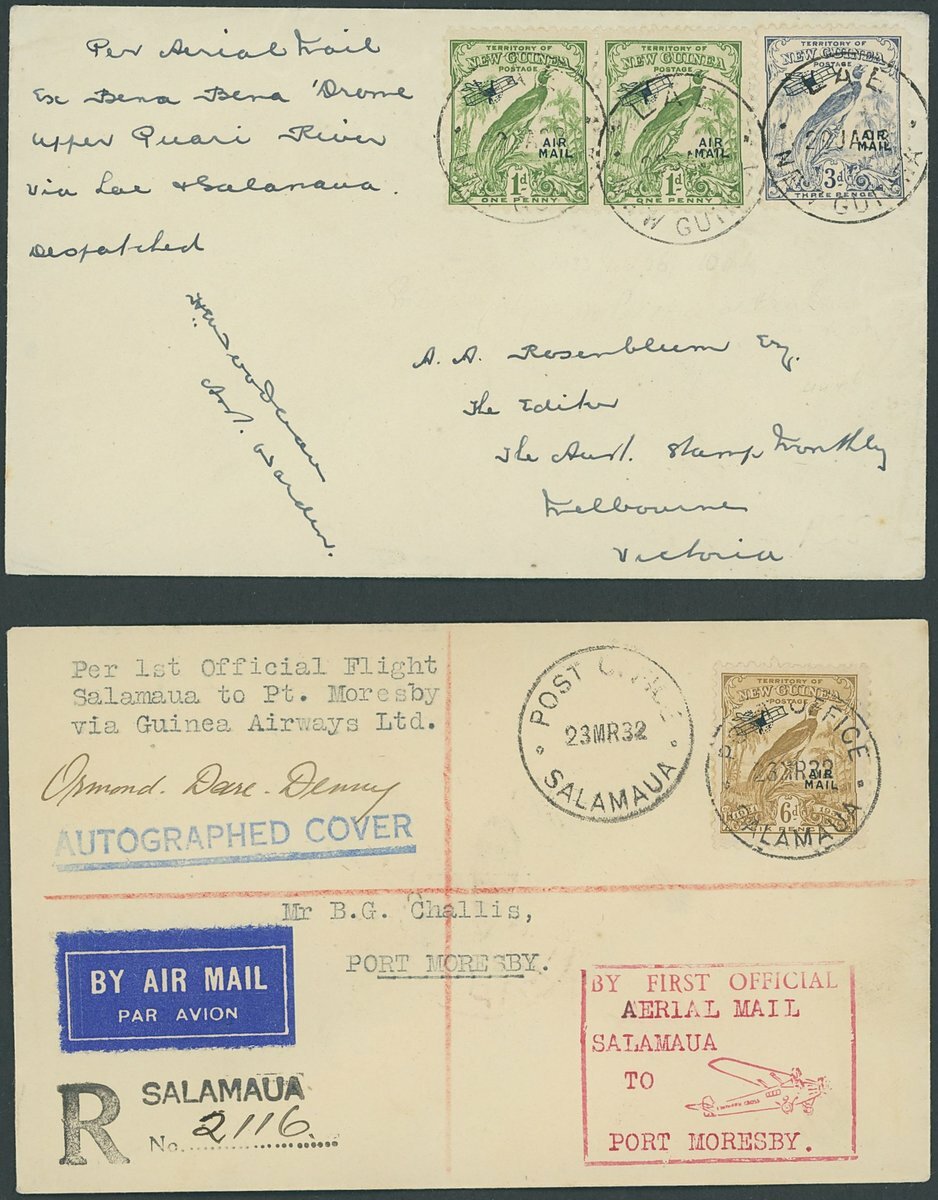 Per Aerial Mail
Ex Bena Bena 'Drome
Upper Puari River
Via Lae & Salamaua.
Despatched
TERRITORY OF
NEW GUINEA
POSTAGE
AIR
MAIL
1d
ONE PENNY
TERRITORY OF
NEW GUINEA
POSTAGE
LAE
AIR
MAIL
1d
ONE PENNY
NEW GUINEA
TERRITORY OF
NEW GUINEA
POSTAGE
LAE
AIR
MAIL
3d
THREE PENCE
NEW GUINEA
Warden.
A. A. Rosenblum Esq.
The Editor
The Aust. Stamp Monthly
Melbourne
Victoria
Per 1st Official Flight
Salamaua to Pt. Moresby
via Guinea Airways Ltd.
Ormond. Dare. Denny
AUTOGRAPHED COVER
POST OFFICE
23MR32
SALAMAUA
TERRITORY OF
NEW GUINEA
POSTAGE
POST OFFICE
23MR32
AIR
MAIL
6d
SIX PENCE
SALAMAUA
Mr B.G. Challis,
PORT MORESBY.
BY AIR MAIL
PAR AVION
R
SALAMAUA
No. 2116.
BY FIRST OFFICIAL
AERIAL MAIL
SALAMAUA
TO
PORT MORESBY.